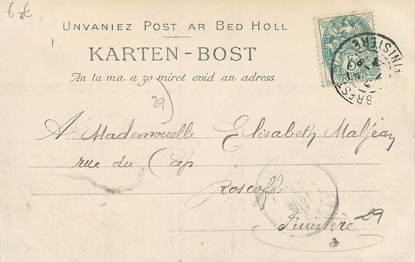 6 €
Unvaniez Post ar Bed Holl
KARTEN-BOST
An tu ma a zo miret evid an adress
29
A Mademoiselle Elisabeth Maljean
rue du Cap
Roscoff
Finistère
29
BREST
FINISTERE